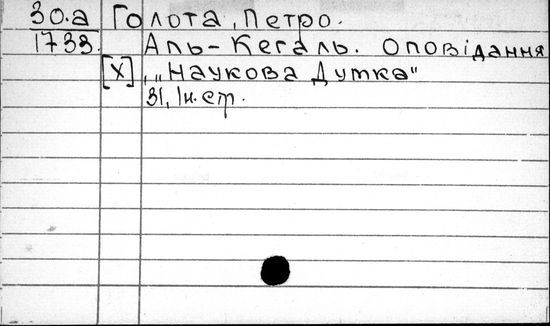 30.а Голота, Петро.
1733. Аль-Кегаль. Оповідання
[X], „Наукова Думка“
31, 1н.стр.